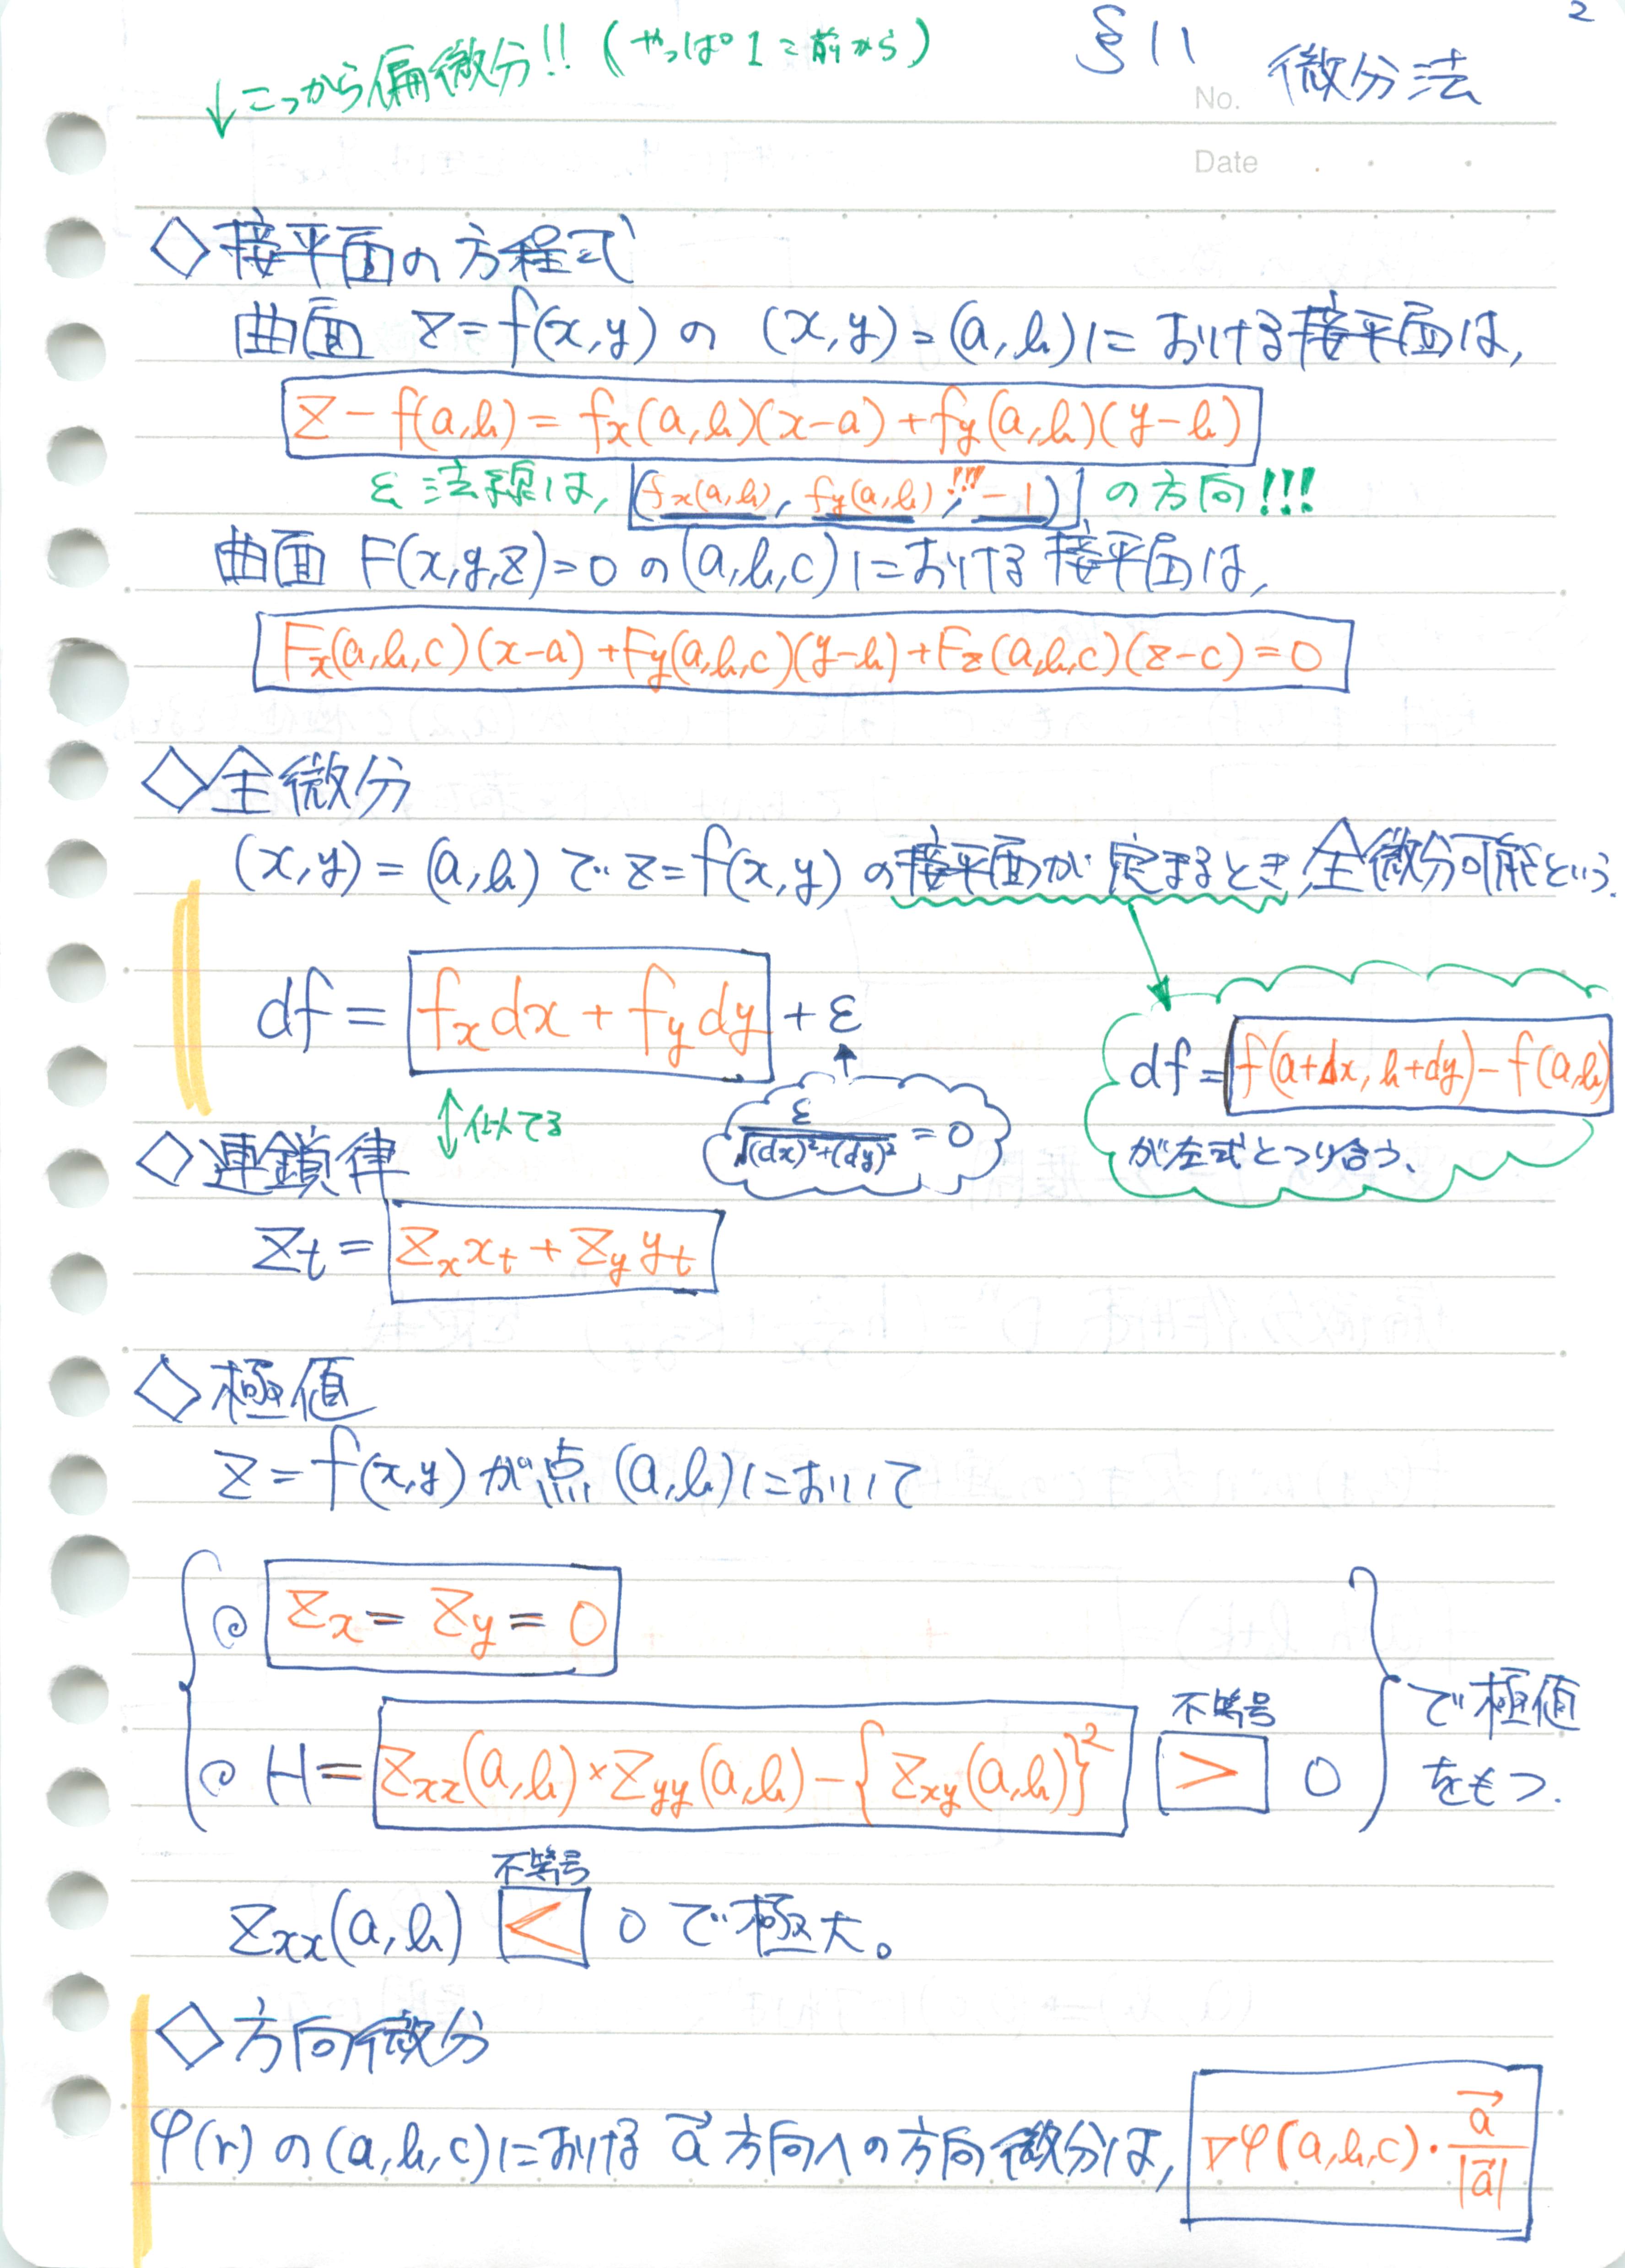 2
§11 微分法
↓こっから偏微分!! (やっぱ1コ前から)
No.
Date
◇接平面の方程式
曲面 z=f(x,y) の (x,y)=(a,b)における接平面は,
z-f(a,b)=fx(a,b)(x-a)+fy(a,b)(y-b)
法線は, (fx(a,b), fy(a,b), -1) の方向!!!
!!!
曲面 F(x,y,z)=0 の(a,b,c)における接平面は,
Fx(a,b,c)(x-a)+Fy(a,b,c)(y-b)+Fz(a,b,c)(z-c)=0
◇全微分
(x,y)=(a,b) で z=f(x,y) の接平面が定まるとき,全微分可能という.
df = fxdx + fydy + ε
ε/√(dx)²+(dy)² = 0
df = f(a+dx, b+dy)-f(a,b)
が左式とつり合う、
↕似てる
◇連鎖律
zt = zxxt + zyyt
◇極値
z=f(x,y) が点 (a,b)において
zx = zy = 0
H= zxx(a,b)×zyy(a,b)-{zxy(a,b)}² > 0
不等号
で極値
をもつ.
不等号
zxx(a,b) < 0 で極大。
◇方向微分
φ(r) の(a,b,c)における a→ 方向への方向微分は, ∇φ(a,b,c)・a→/|a→|